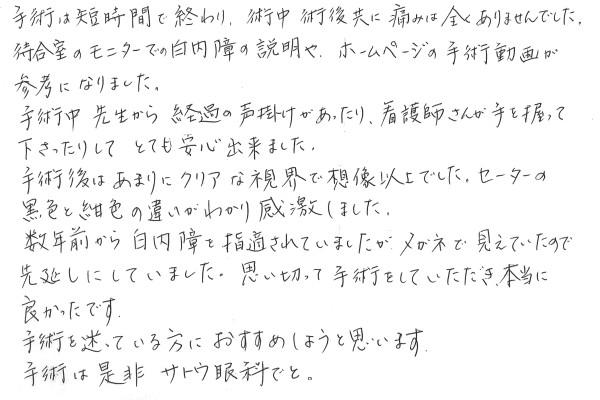 手術は短時間で終わり、術中 術後共に痛みは全くありませんでした。
待合室のモニターでの白内障の説明や、ホームページの手術動画が
参考になりました。
手術中 先生から 経過の声掛けがあったり、看護師さんが手を握って
下さったりして とても安心出来ました。
手術後はあまりにクリアな視界で想像以上でした。セーターの
黒色と紺色の違いがわかり感激しました。
数年前から白内障を指適されていましたが、メガネで見えていたので
先延しにしていました。思い切って手術をしていただき、本当に
良かったです。
手術を迷っている方におすすめしようと思います。
手術は是非 サトウ眼科でと。